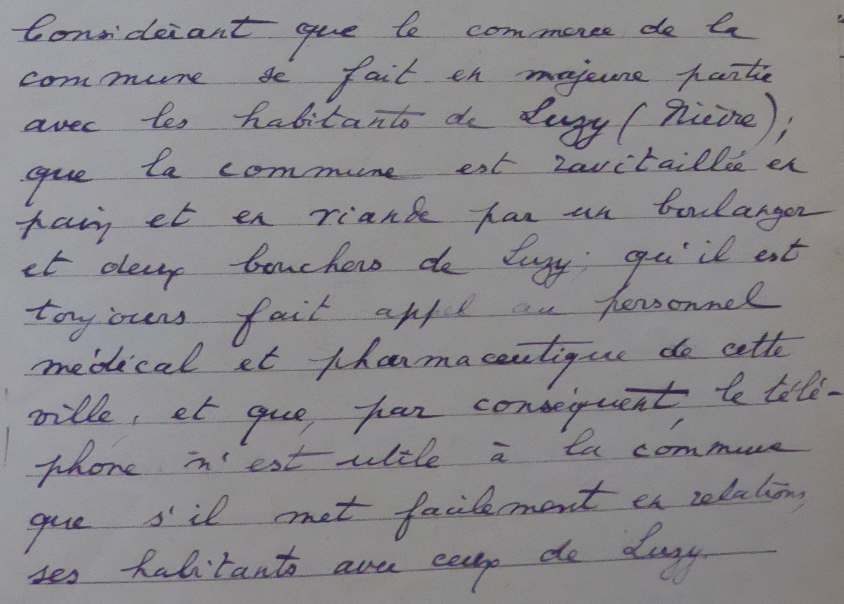 Considérant que le commerce de la
commune se fait en majeure partie
avec les habitants de Luzy (Nièvre);
que la commune est ravitaillée en
pain et en viande par un boulanger
et deux bouchers de Luzy; qu'il est
toujours fait appel au personnel
médical et pharmaceutique de cette
ville, et que, par conséquent, le télé-
phone n'est utile à la commune
que s'il met facilement en relations
ses habitants avec ceux de Luzy.